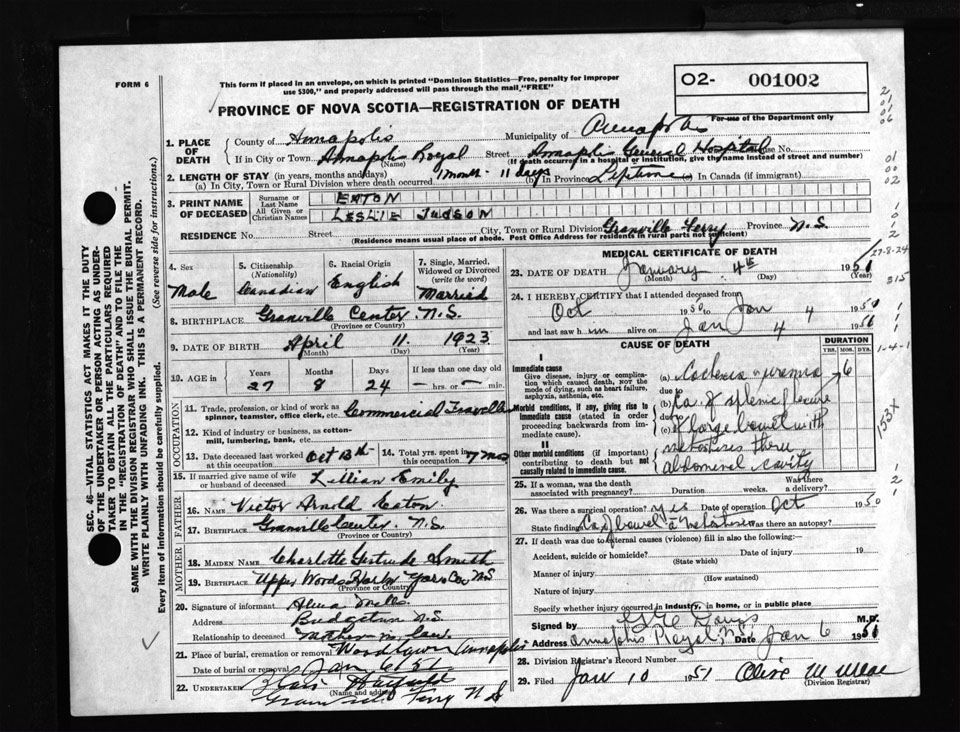 FORM 6
This form if placed in an envelope, on which is printed "Dominion Statistics—Free, penalty for improper
use $300," and properly addressed will pass through the mail "FREE"
PROVINCE OF NOVA SCOTIA—REGISTRATION OF DEATH
02- 001002
For use of the Department only
1. PLACE OF DEATH
County of Annapolis Municipality of Annapolis
If in City or Town Annapolis Royal Street Annapolis General Hospital House No.
(Name) (If death occurred in a hospital or institution, give the name instead of street and number)
2. LENGTH OF STAY (in years, months and days)
(a) In City, Town or Rural Division where death occurred 1 month - 11 days (b) In Province Lifetime (c) In Canada (if immigrant)
3. PRINT NAME OF DECEASED
Surname or Last Name EATON
All Given or Christian Names LESLIE JUDSON
RESIDENCE No. Street City, Town or Rural Division Granville Ferry Province N.S.
(Residence means usual place of abode. Post Office Address for residents in rural parts not sufficient)
4. Sex Male
5. Citizenship (Nationality) Canadian
6. Racial Origin English
7. Single, Married, Widowed or Divorced (write the word) Married
8. BIRTHPLACE Granville Center N.S.
(Province or Country)
9. DATE OF BIRTH April 11 1923
(Month) (Day) (Year)
10. AGE in Years Months Days If less than one day old
27 8 24 hrs. or min.
OCCUPATION
11. Trade, profession, or kind of work as spinner, teamster, office clerk, etc. Commercial Traveller
12. Kind of industry or business, as cotton-mill, lumbering, bank, etc.
13. Date deceased last worked at this occupation Oct 13th
14. Total yrs. spent in this occupation 7 mos
15. If married give name of wife or husband of deceased Lillian Emily
FATHER
16. NAME Victor Arnold Eaton
17. BIRTHPLACE Granville Center N.S.
(Province or Country)
MOTHER
18. MAIDEN NAME Charlotte Gertrude Smith
19. BIRTHPLACE Upper Woods Harbor Yar Co N.S
(Province or Country)
20. Signature of informant Alma
Address Bridgetown N.S.
Relationship to deceased mother in law
21. Place of burial, cremation or removal Woodlawn Annapolis
Date of burial or removal Jan 6/51
22. UNDERTAKER Blair
(Name and address) Granville Ferry N S
MEDICAL CERTIFICATE OF DEATH
23. DATE OF DEATH January 4th 1951
(Month) (Day) (Year)
24. I HEREBY CERTIFY that I attended deceased from
Oct 1950 to Jan 4 1950
and last saw him alive on Jan 4 1950
CAUSE OF DEATH
DURATION
YRS. MOS. DYS.
I
Immediate cause
Give disease, injury or complication which caused death, not the mode of dying, such as heart failure, asphyxia, asthenia, etc.
(a) Cachexia uremia 6
due to
Morbid conditions, if any, giving rise to immediate cause (stated in order proceeding backwards from immediate cause).
(b) Ca. of splenic flexure
due to
(c) of large bowel with
II
Other morbid conditions (if important) contributing to death but not causally related to immediate cause.
metastases thru
abdominal cavity
25. If a woman, was the death associated with pregnancy? Duration weeks. Was there a delivery?
26. Was there surgical operation? yes Date of operation Oct 1950
State finding Ca of bowel metastases Was there an autopsy?
27. If death was due to external causes (violence) fill in also the following:—
Accident, suicide or homicide? Date of injury 19
(State which)
Manner of injury
(How sustained)
Nature of injury
Specify whether injury occurred in industry, in home, or in public place
Signed by M.D.
Address Annapolis Royal, N.S. Date Jan 6 1951
28. Division Registrar's Record Number
29. Filed Jan 10 1951 Olive M
(Division Registrar)
SEC. 46—VITAL STATISTICS ACT MAKES IT THE DUTY
OF THE UNDERTAKER OR PERSON ACTING AS UNDER-
TAKER TO OBTAIN ALL THE PARTICULARS REQUIRED
IN THE "REGISTRATION OF DEATH" AND TO FILE THE
SAME WITH THE DIVISION REGISTRAR WHO SHALL ISSUE THE BURIAL PERMIT.
WRITE PLAINLY WITH UNFADING INK. THIS IS A PERMANENT RECORD.
Every item of information should be carefully supplied. (See reverse side for instructions.)
27-8-24
315
1-4-1
153X